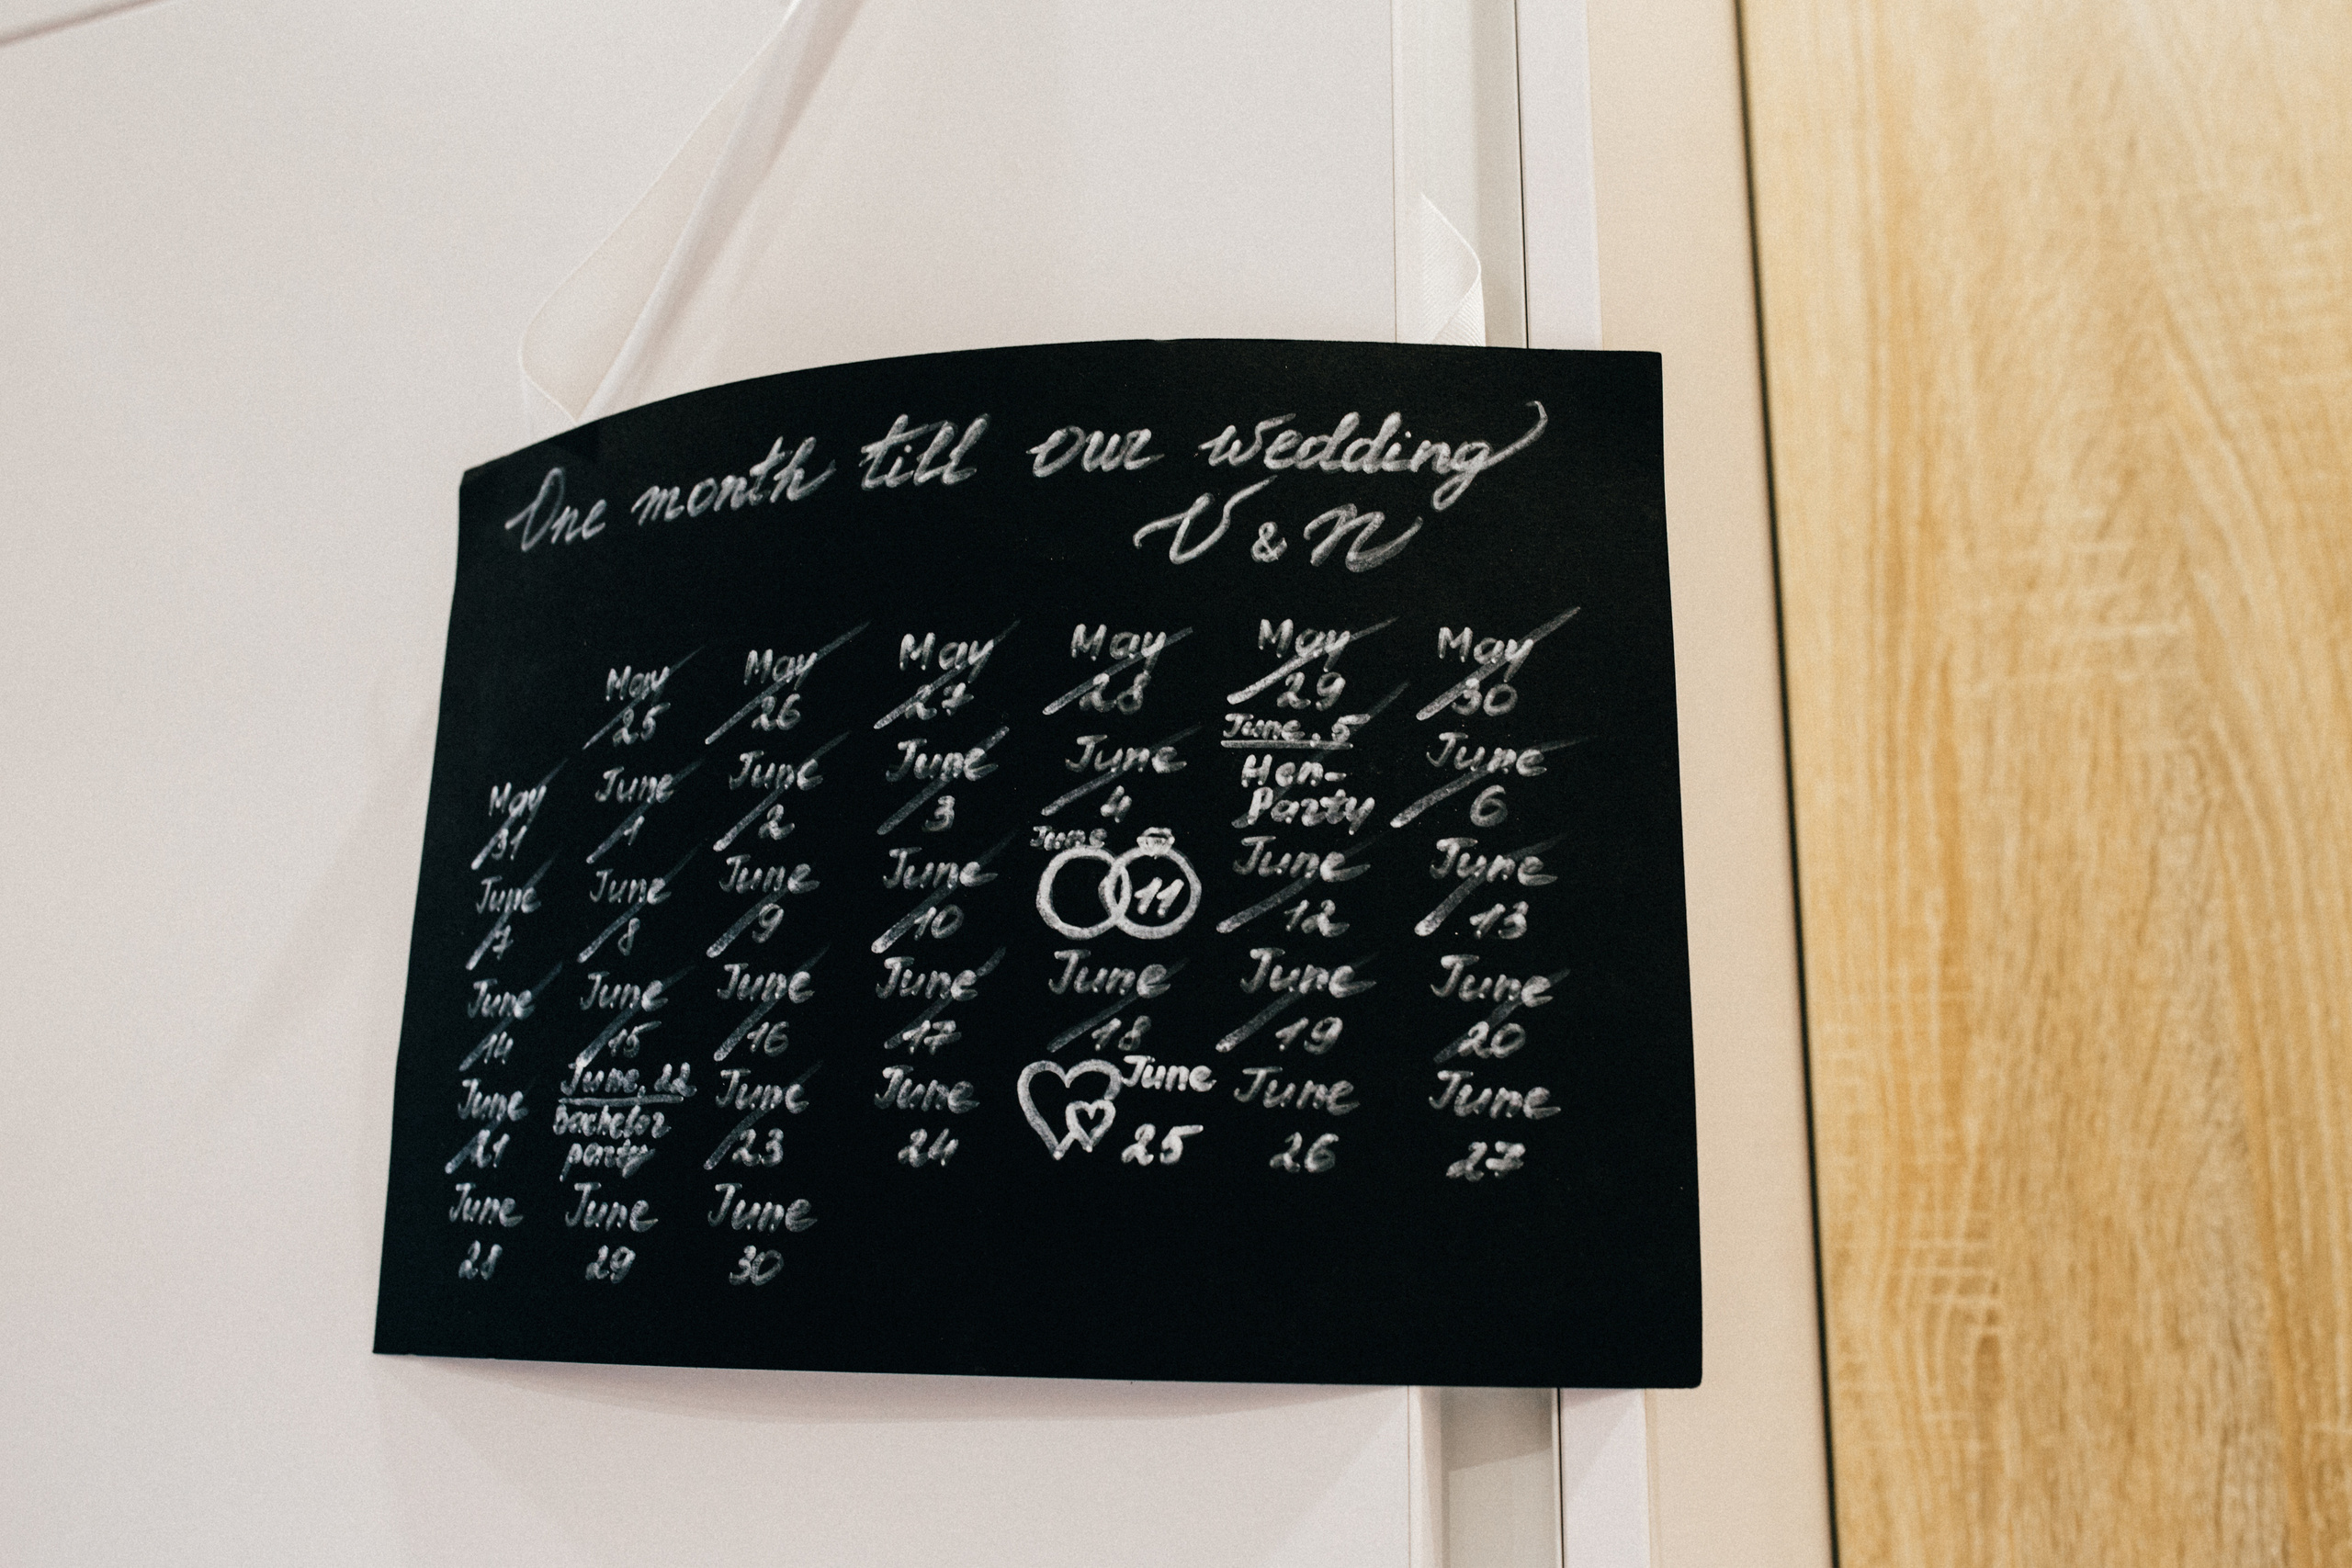 One month till our wedding
V & N
May May May May May May
25 26 27 28 29 30
May June June June June June. 5 June
31 1 2 3 4 Hen-Party 6
June June June June June June June
7 8 9 10 11 12 13
June June June June June June June
14 15 16 17 18 19 20
June June. 22 June June June June June
21 Bachelor party 23 24 25 26 27
June June June
28 29 30